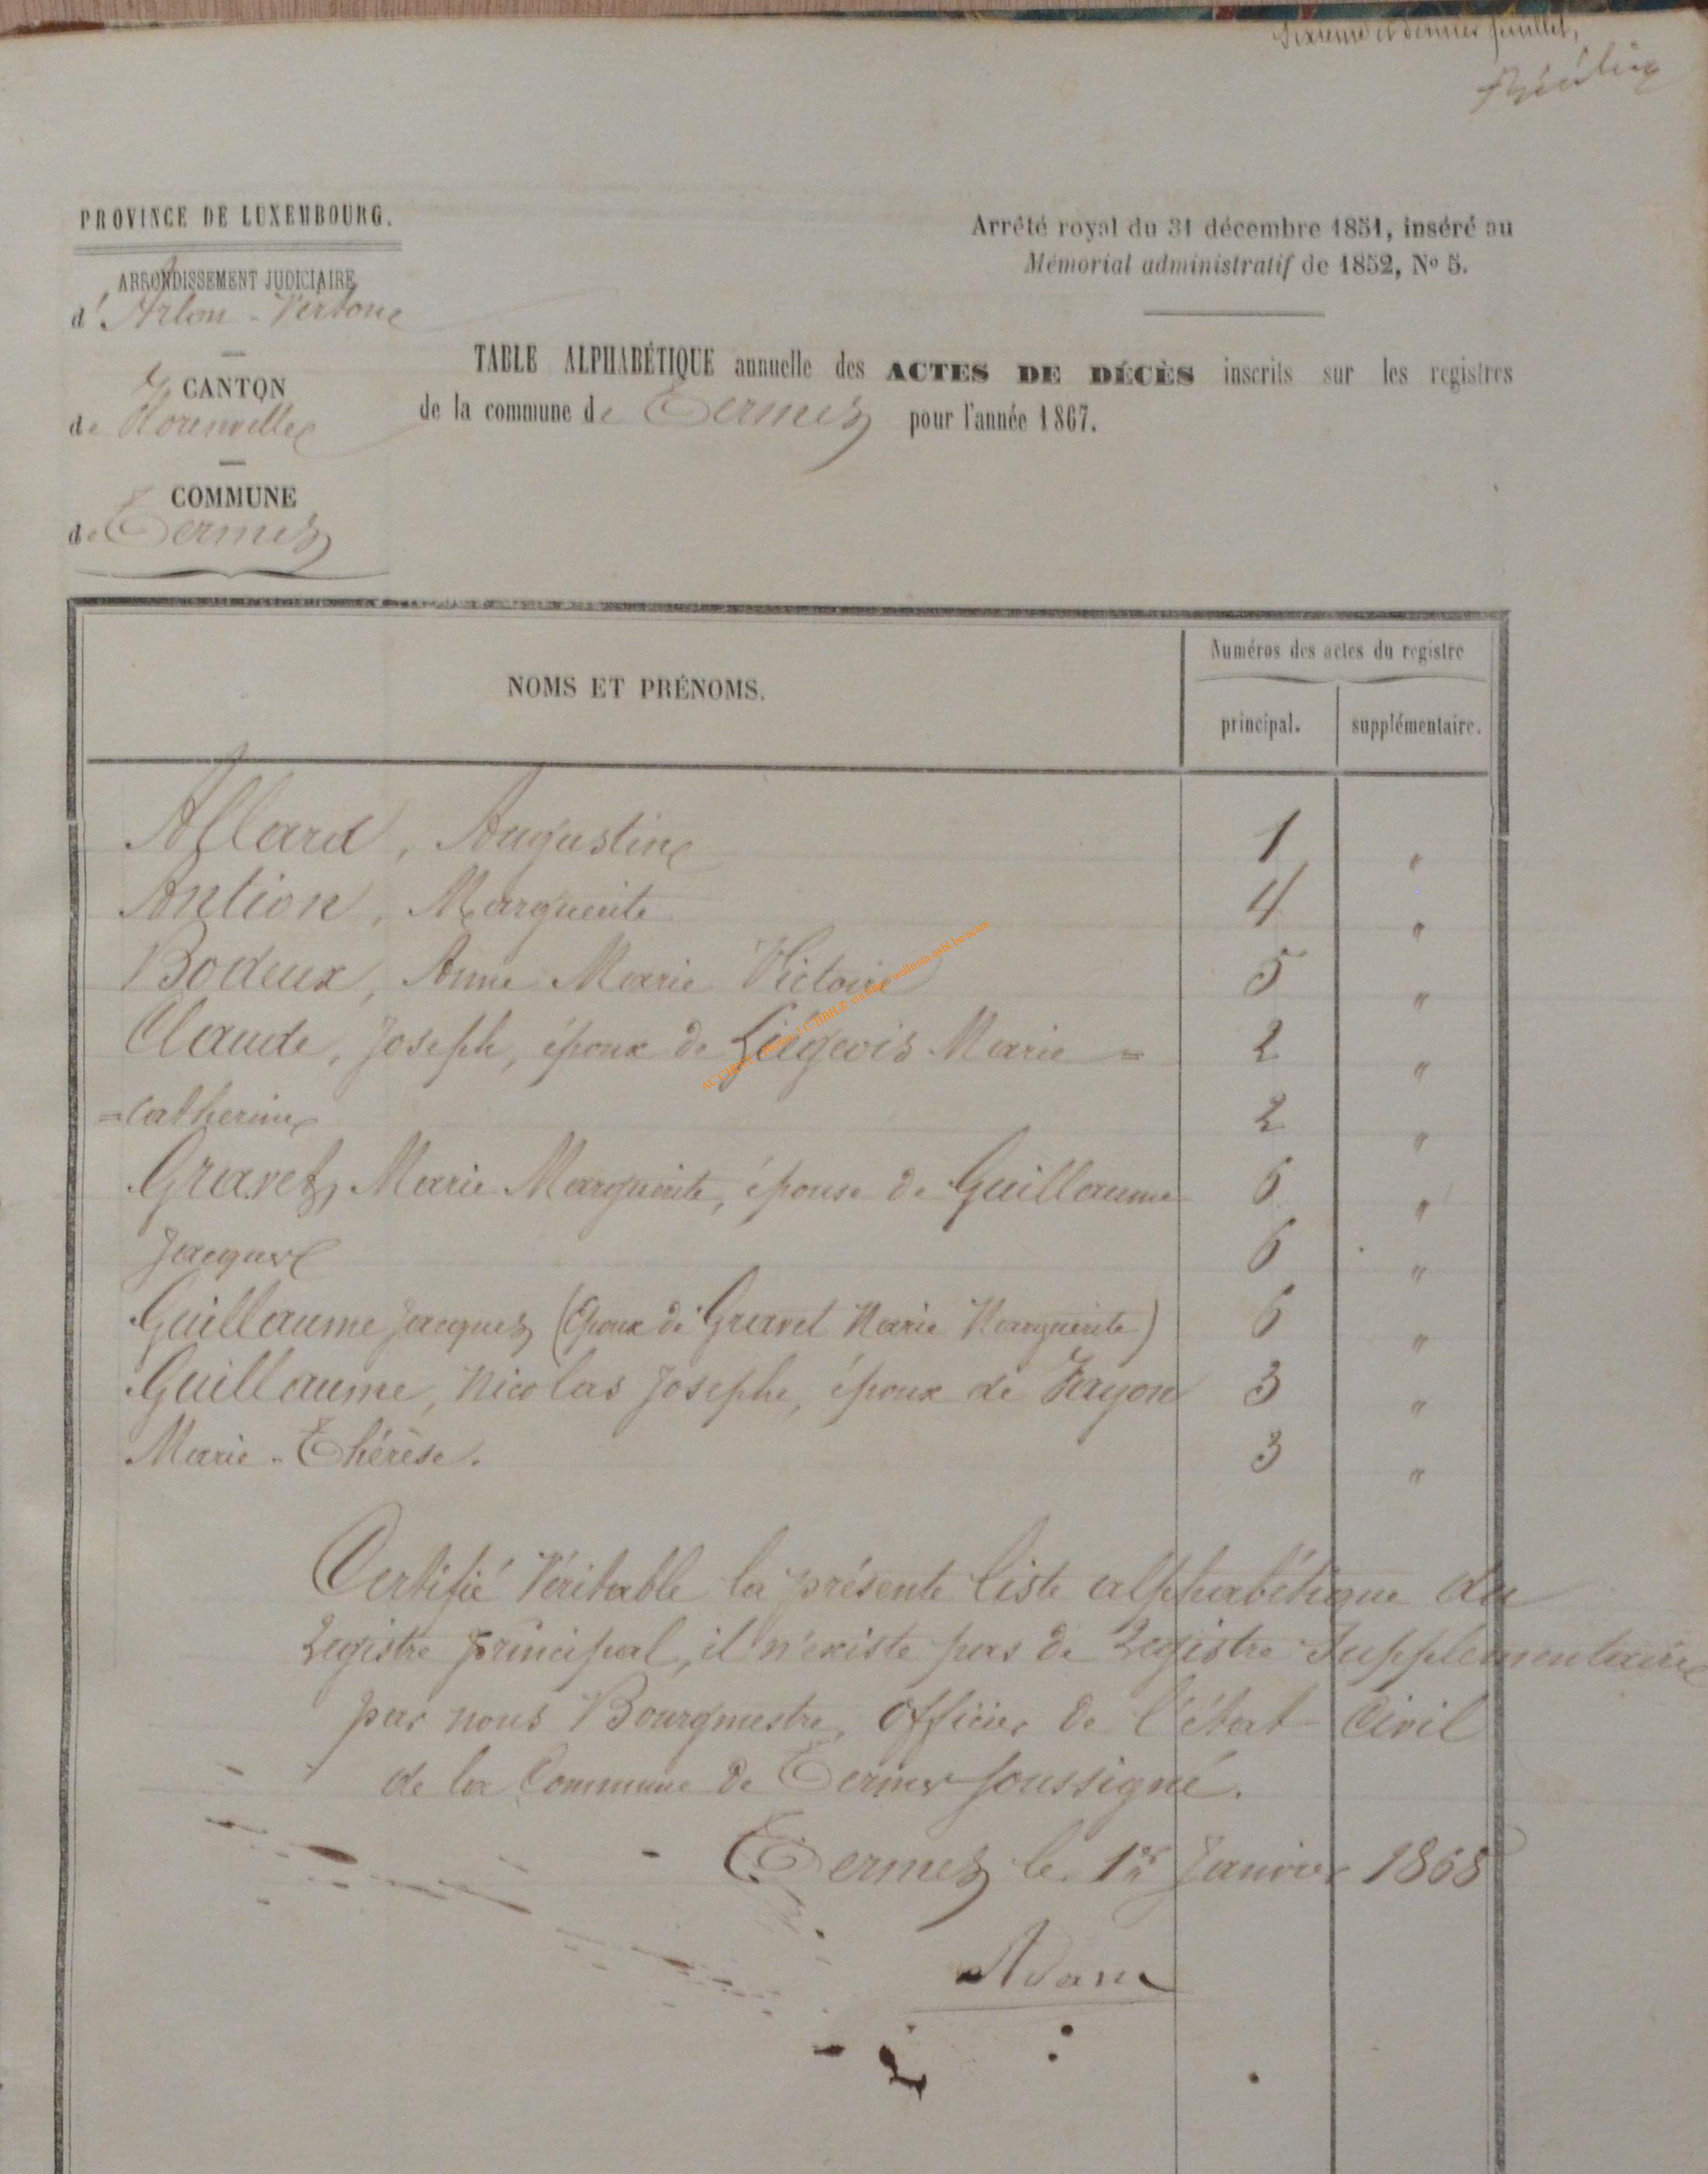 Sixième et dernier feuillet,
PROVINCE DE LUXEMBOURG.
Arrêté royal du 31 décembre 1851, inséré au
Mémorial administratif de 1852, No 5.
ARRONDISSEMENT JUDICIAIRE
d'Arlon - Virton
CANTON
de Florenville
COMMUNE
de Termes
TABLE ALPHABÉTIQUE annuelle des ACTES DE DÉCÈS inscrits sur les registres
de la commune de Termes pour l'année 1867.
NOMS ET PRÉNOMS.
Numéros des actes du registre
principal. supplémentaire.
Allard, Augustine 1 "
Antion, Marguerite 4 "
Bodeux, Anne Marie Victoire 5 "
Claude, Joseph, époux de Liégeois Marie = 2 "
=Catherine 2 "
Gravet, Marie Marguerite, épouse de Guillaume 6 "
Jacques 6 "
Guillaume Jacques (Époux de Gravet Marie Marguerite) 6 "
Guillaume, Nicolas Joseph, époux de Fayon 3 "
Marie-Thérèse. 3 "
Certifié Véritable la présente liste alphabétique du
Registre principal, il n'existe pas de Registre Supplémentaire
par nous Bourgmestre, Officier de l'état-Civil
de la Commune de Termes soussigné.
Termes le 1er Janvier 1868
Adam